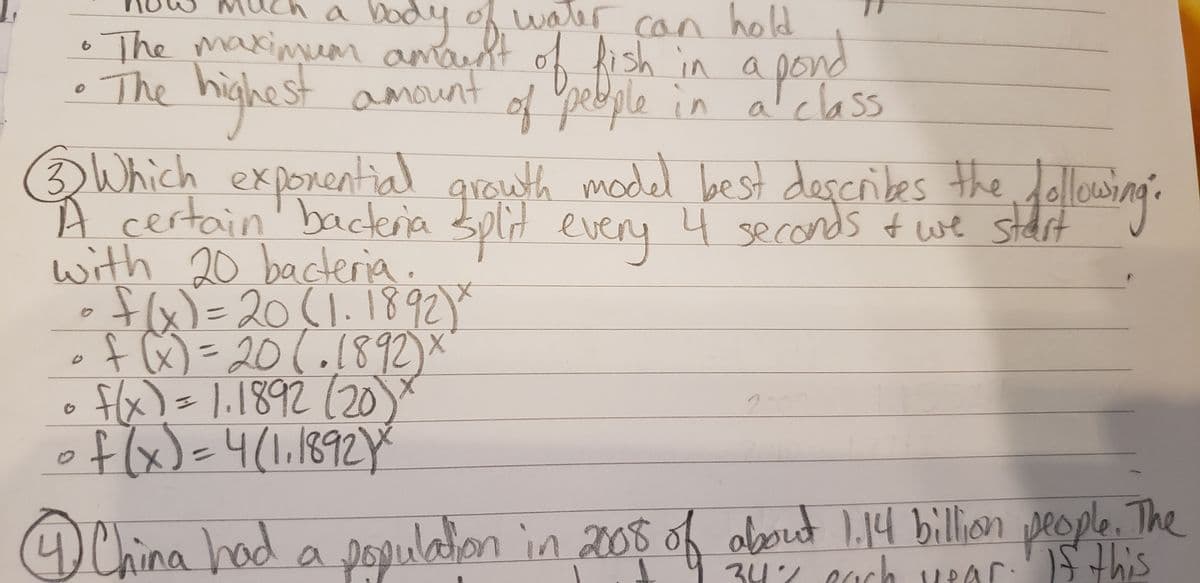 much a body of water can hold
• The maximum amount of fish in a pond
• The highest amount of people in a class
③ Which exponential growth model best describes the following:
A certain bacteria split every 4 seconds & we start
with 20 bacteria.
• f(x) = 20(1.1892)^x
• f(x) = 20(.1892)^x
• f(x) = 1.1892(20)^x
• f(x) = 4(1.1892)^x
④ China had a population in 2008 of about 1.14 billion people. The
34% each year. If this